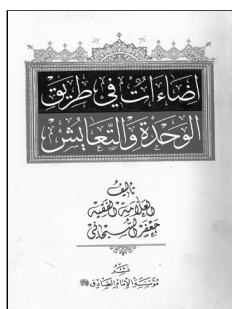 إضاءات في طريق
الوحدة والتعايش
تأليف
العلامة الفقيه
جعفر السبحاني
نشر
مؤسسة الإمام الصادق